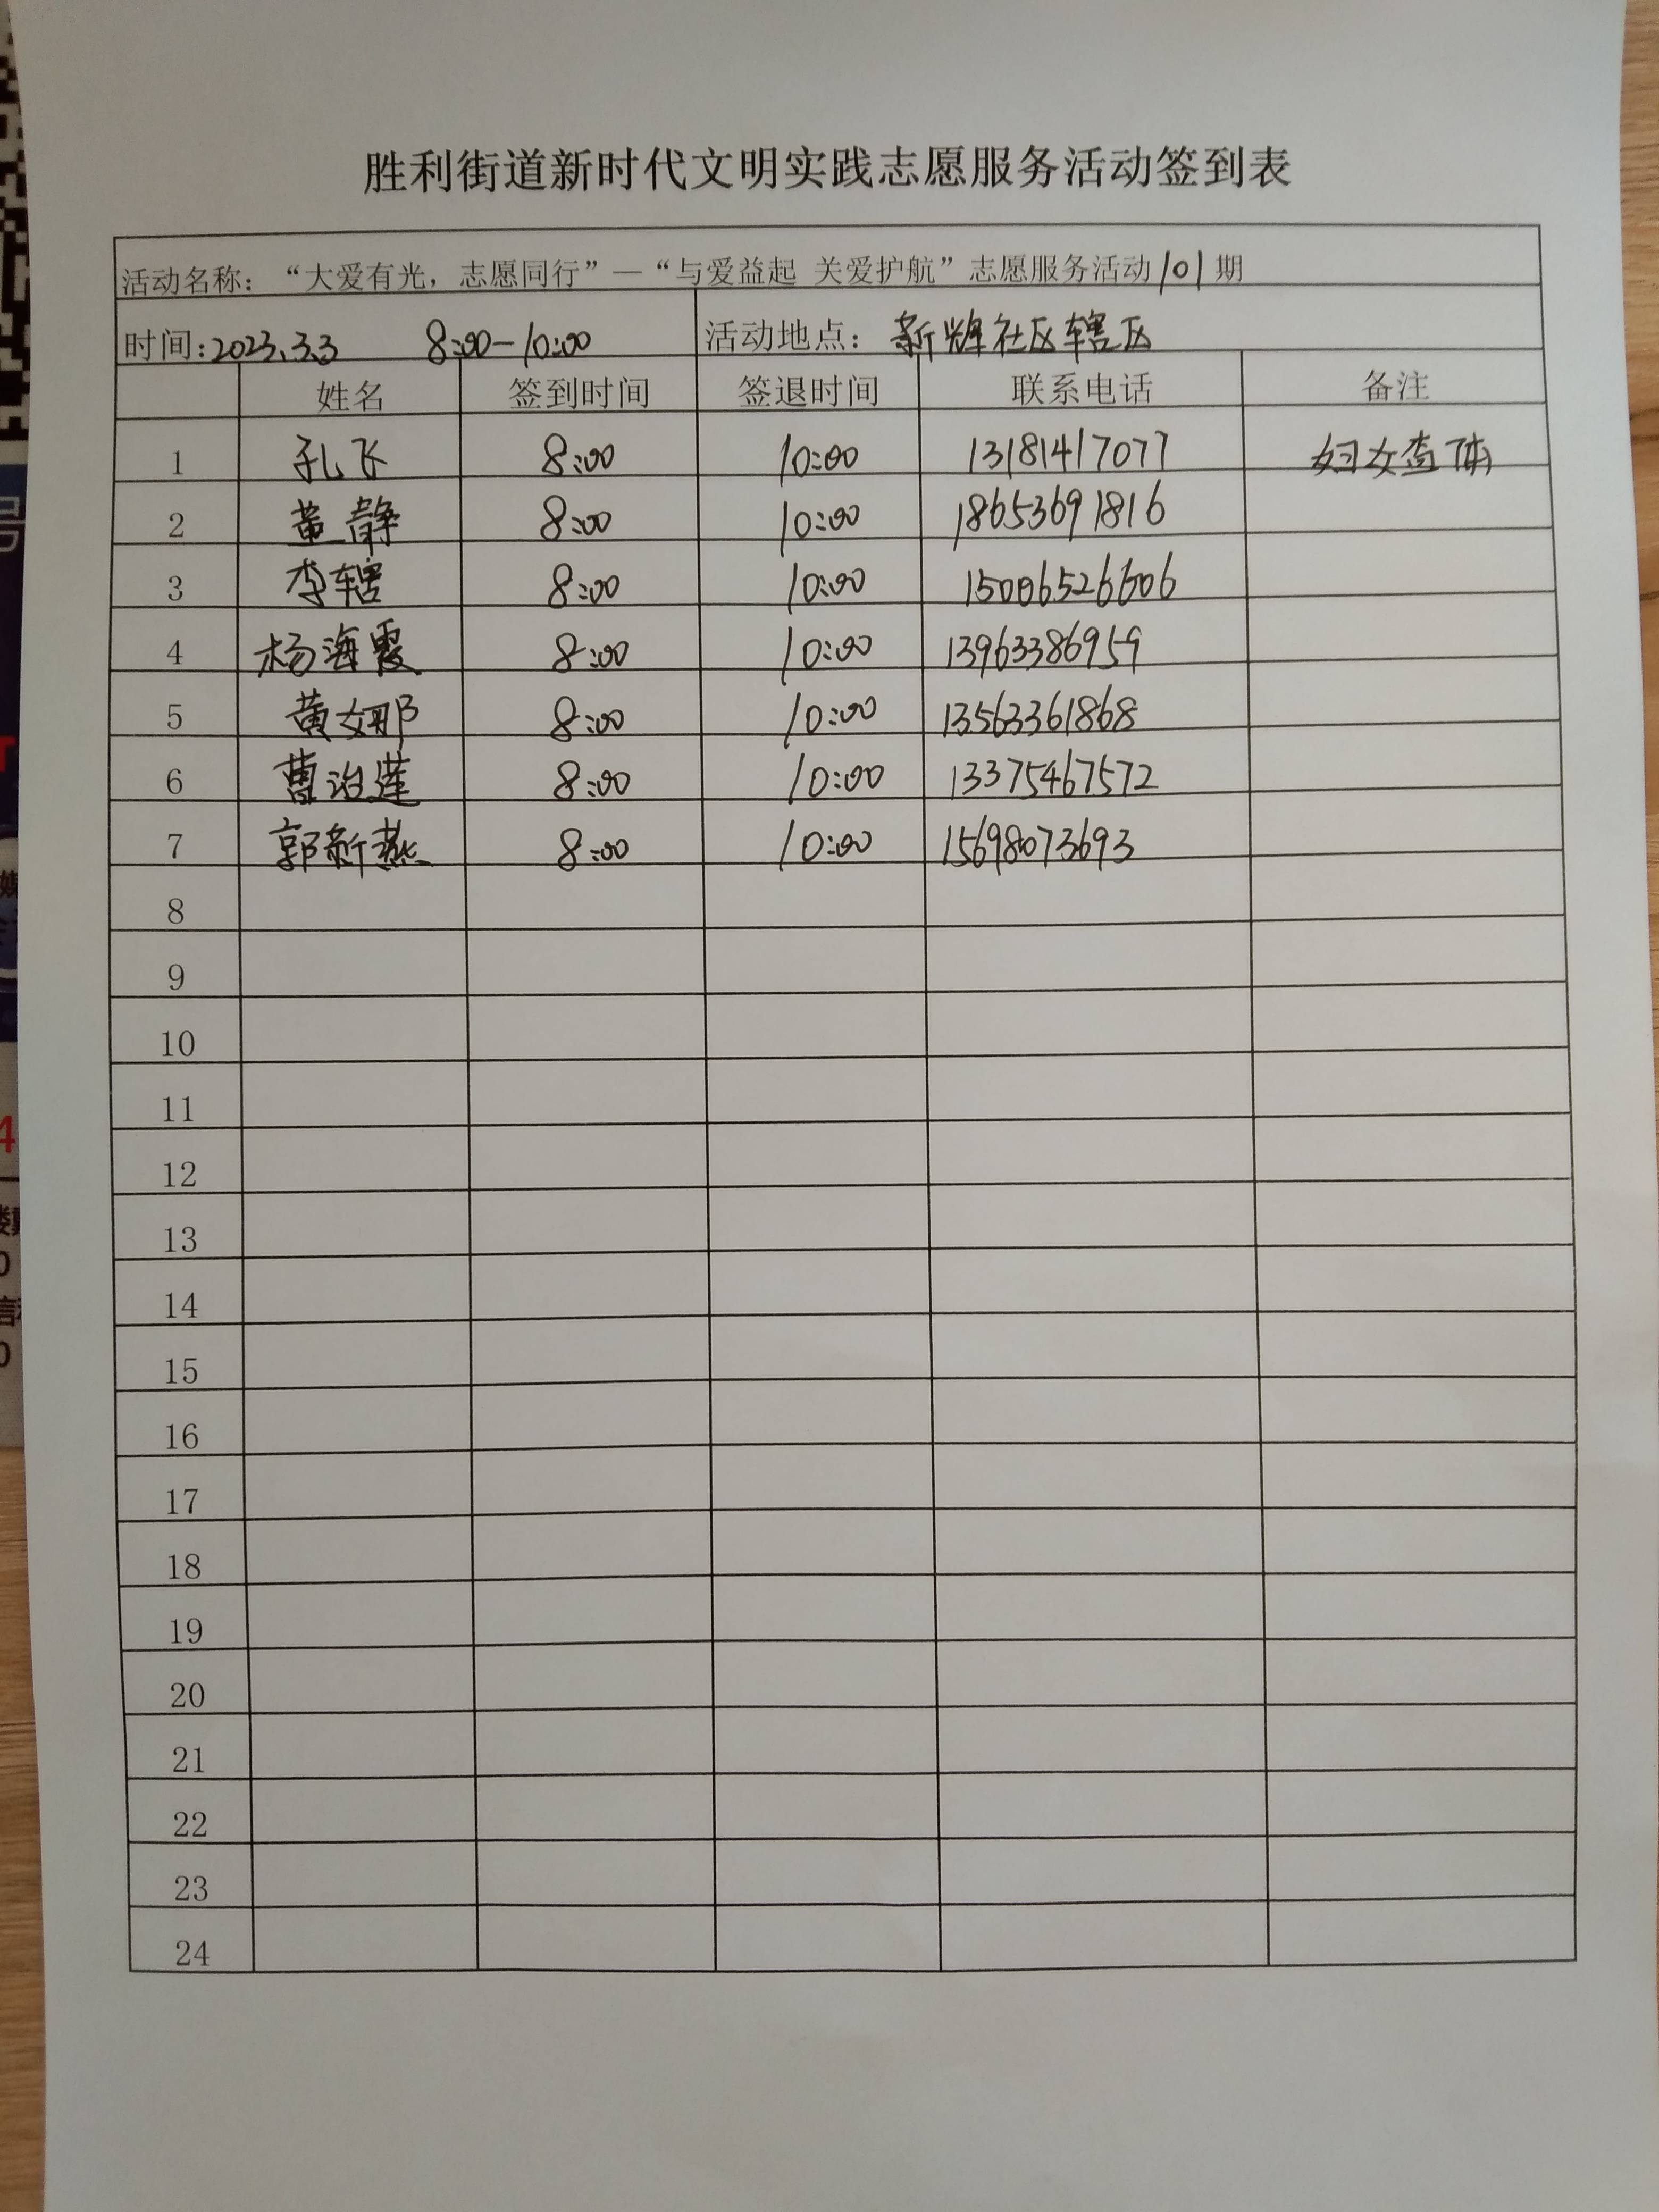 胜利街道新时代文明实践志愿服务活动签到表
活动名称：“大爱有光，志愿同行”—“与爱益起 关爱护航”志愿服务活动101期
时间:2023.3.3 8:00-10:00 活动地点：新辉社区辖区
姓名 签到时间 签退时间 联系电话 备注
1 孔飞 8:00 10:00 13181417077 妇女查体
2 董静 8:00 10:00 18653691816
3 李辖 8:00 10:00 15006526606
4 杨海霞 8:00 10:00 13963386959
5 黄娜 8:00 10:00 13563361868
6 曹治莲 8:00 10:00 13375467572
7 郭新燕 8:00 10:00 15698073693
8
9
10
11
12
13
14
15
16
17
18
19
20
21
22
23
24